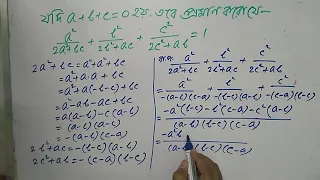 যদি a+b+c=0 হয়, তবে প্রমাণ করো যে-
a²/(2a²+bc) + b²/(2b²+ac) + c²/(2c²+ab) = 1
2a²+bc = a²+a²+bc
=a²+a.a+bc
=a²+a(-b-c)+bc
=a²-ab-ac+bc
=a(a-b)-c(a-b)
=(a-b)(a-c)
=-(a-b)(c-a)
2b²+ac=-(b-c)(a-b)
2c²+ab=-(c-a)(b-c)
a²/(2a²+bc) + b²/(2b²+ac) + c²/(2c²+ab)
= a²/(-(a-b)(c-a)) + b²/(-(b-c)(a-b)) + c²/(-(c-a)(b-c))
= (-a²(b-c)-b²(c-a)-c²(a-b))/((a-b)(b-c)(c-a))
= -a²b/((a-b)(b-c)(c-a))